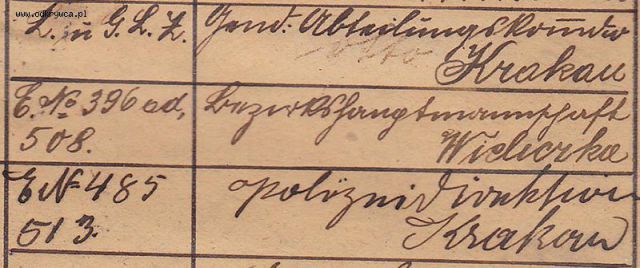 www.odkrywca.pl
L. u G. L. Z. Gend: Abteilungskomdo
Krakau
E. No 396 ad, Bezirkshauptmannschaft
508. Wieliczka
E No 485 polizeidirektion
513. Krakau